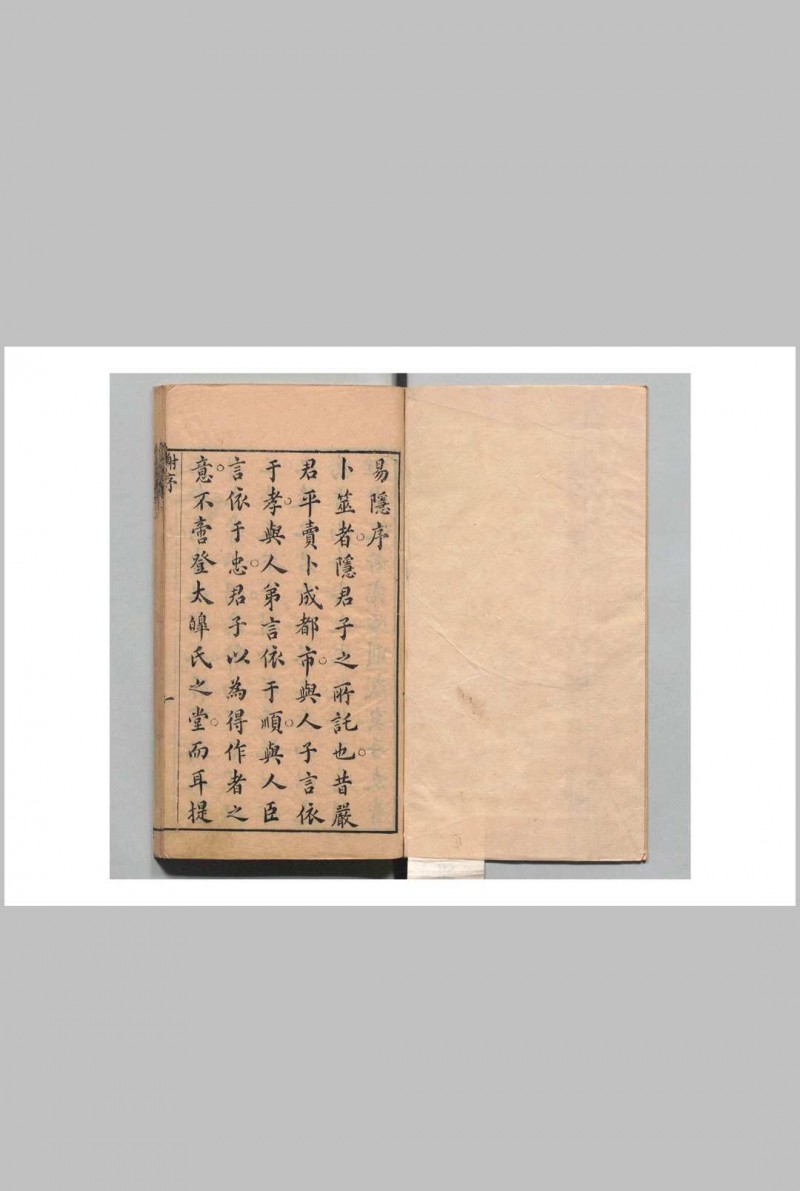 易隱序
卜筮者隱君子之所託也昔嚴
君平賣卜成都市與人子言依
于孝與人弟言依于順與人臣
言依于忠君子以為得作者之
意不啻登太皞氏之堂而耳提
謝序
一